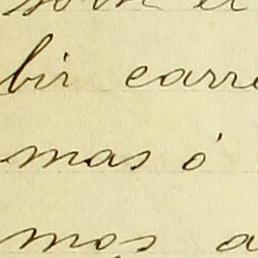 bir carre
mas ó
mos a